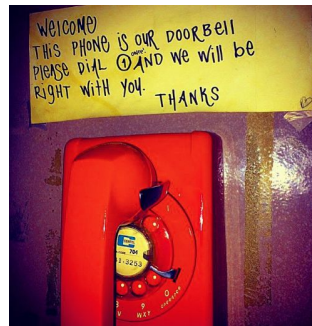 WELCOME!
THIS PHONE iS OUR DOORBEll
PlEASE DiAL ① ONCE! AND WE Will bE
RiGHT WiTH YOU.
THANKS
704
1-3253
9
0
WXY
OPERATOR